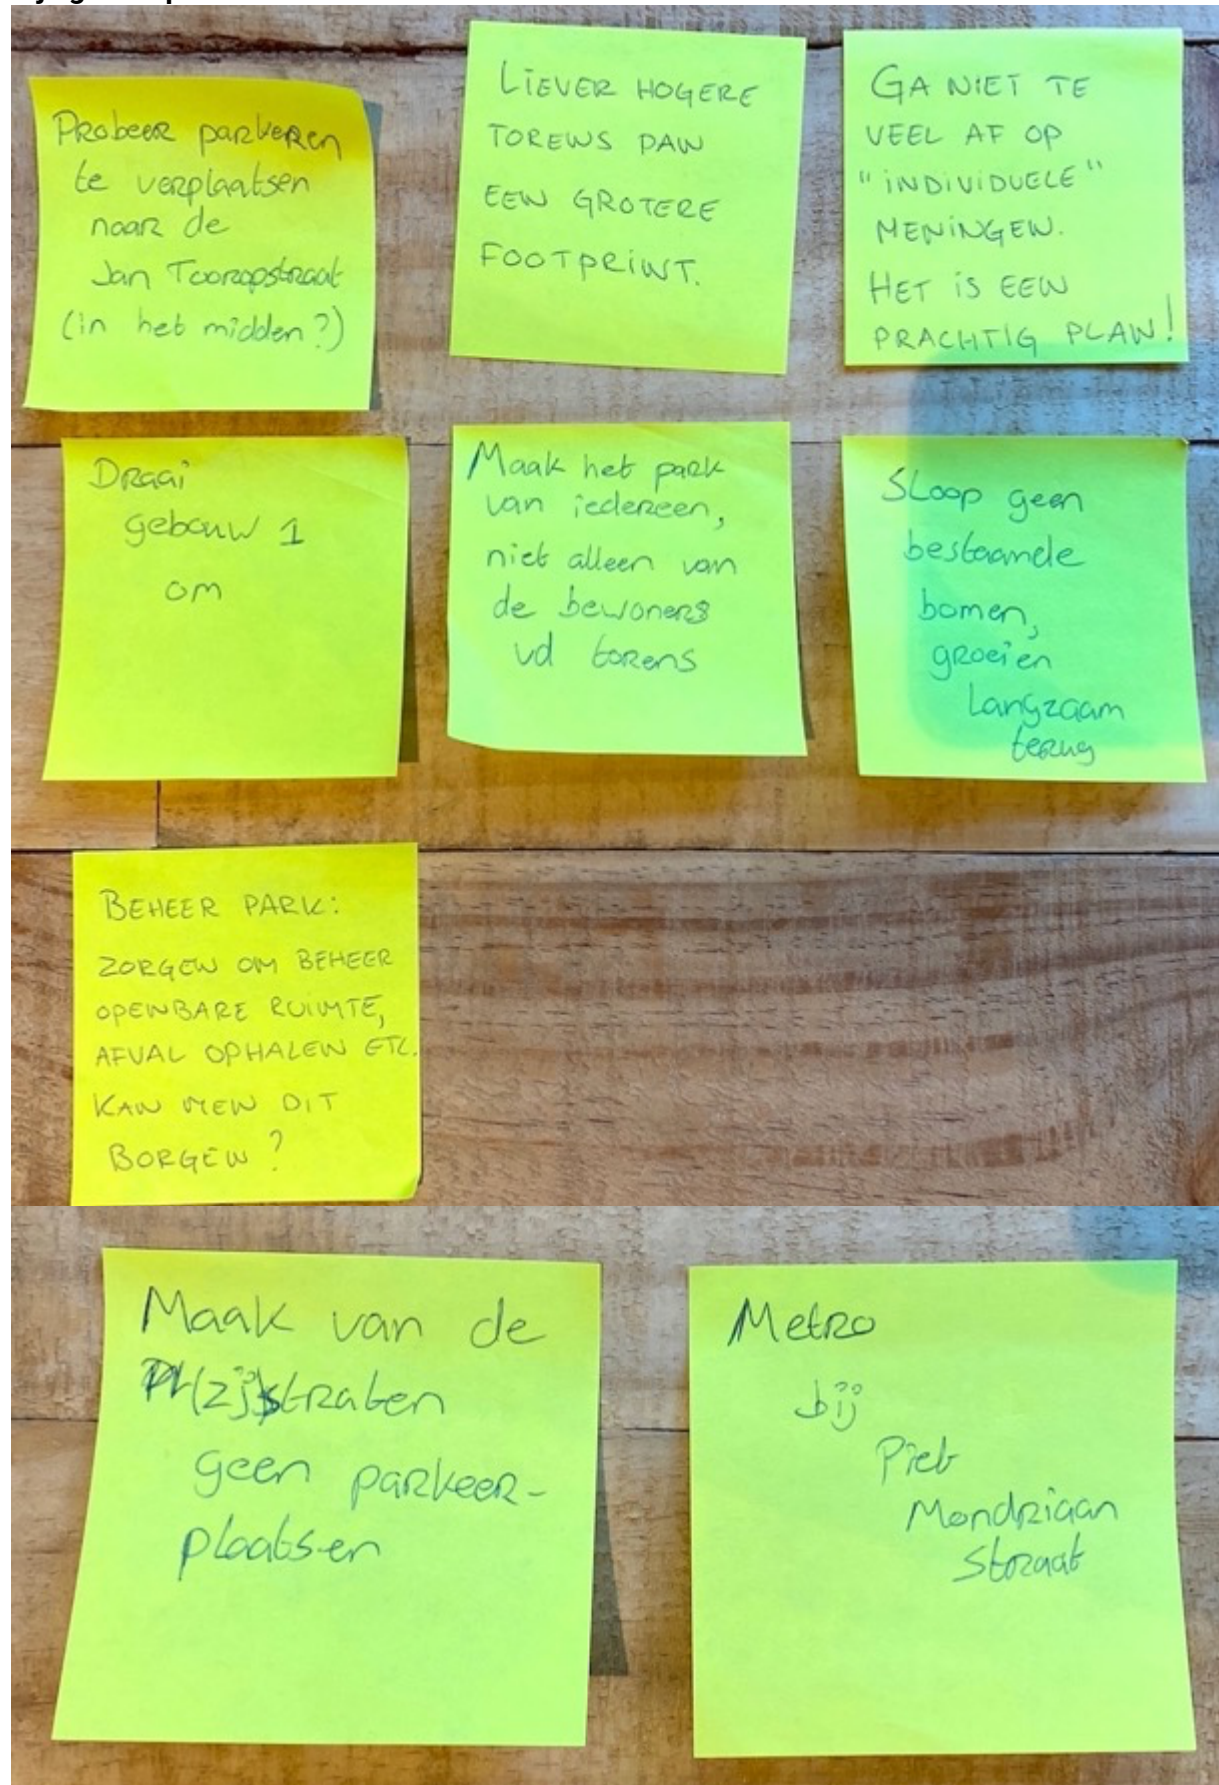 Probeer parkeren
te verplaatsen
naar de
Jan Tooropstraat
(in het midden?)
LIEVER HOGERE
TORENS DAN
EEN GROTERE
FOOTPRINT.
GA NIET TE
VEEL AF OP
"INDIVIDUELE"
MENINGEN.
HET IS EEN
PRACHTIG PLAN!
Draai
gebouw 1
om
Maak het park
van iedereen,
niet alleen van
de bewoners
vd torens
Sloop geen
bestaande
bomen,
groeien
langzaam
terug
BEHEER PARK:
ZORGEN OM BEHEER
OPENBARE RUIMTE,
AFVAL OPHALEN ETC.
KAN MEN DIT
BORGEN?
Maak van de
(zij)straten
geen parkeer-
plaatsen
Metro
bij
Piet
Mondriaan
Straat